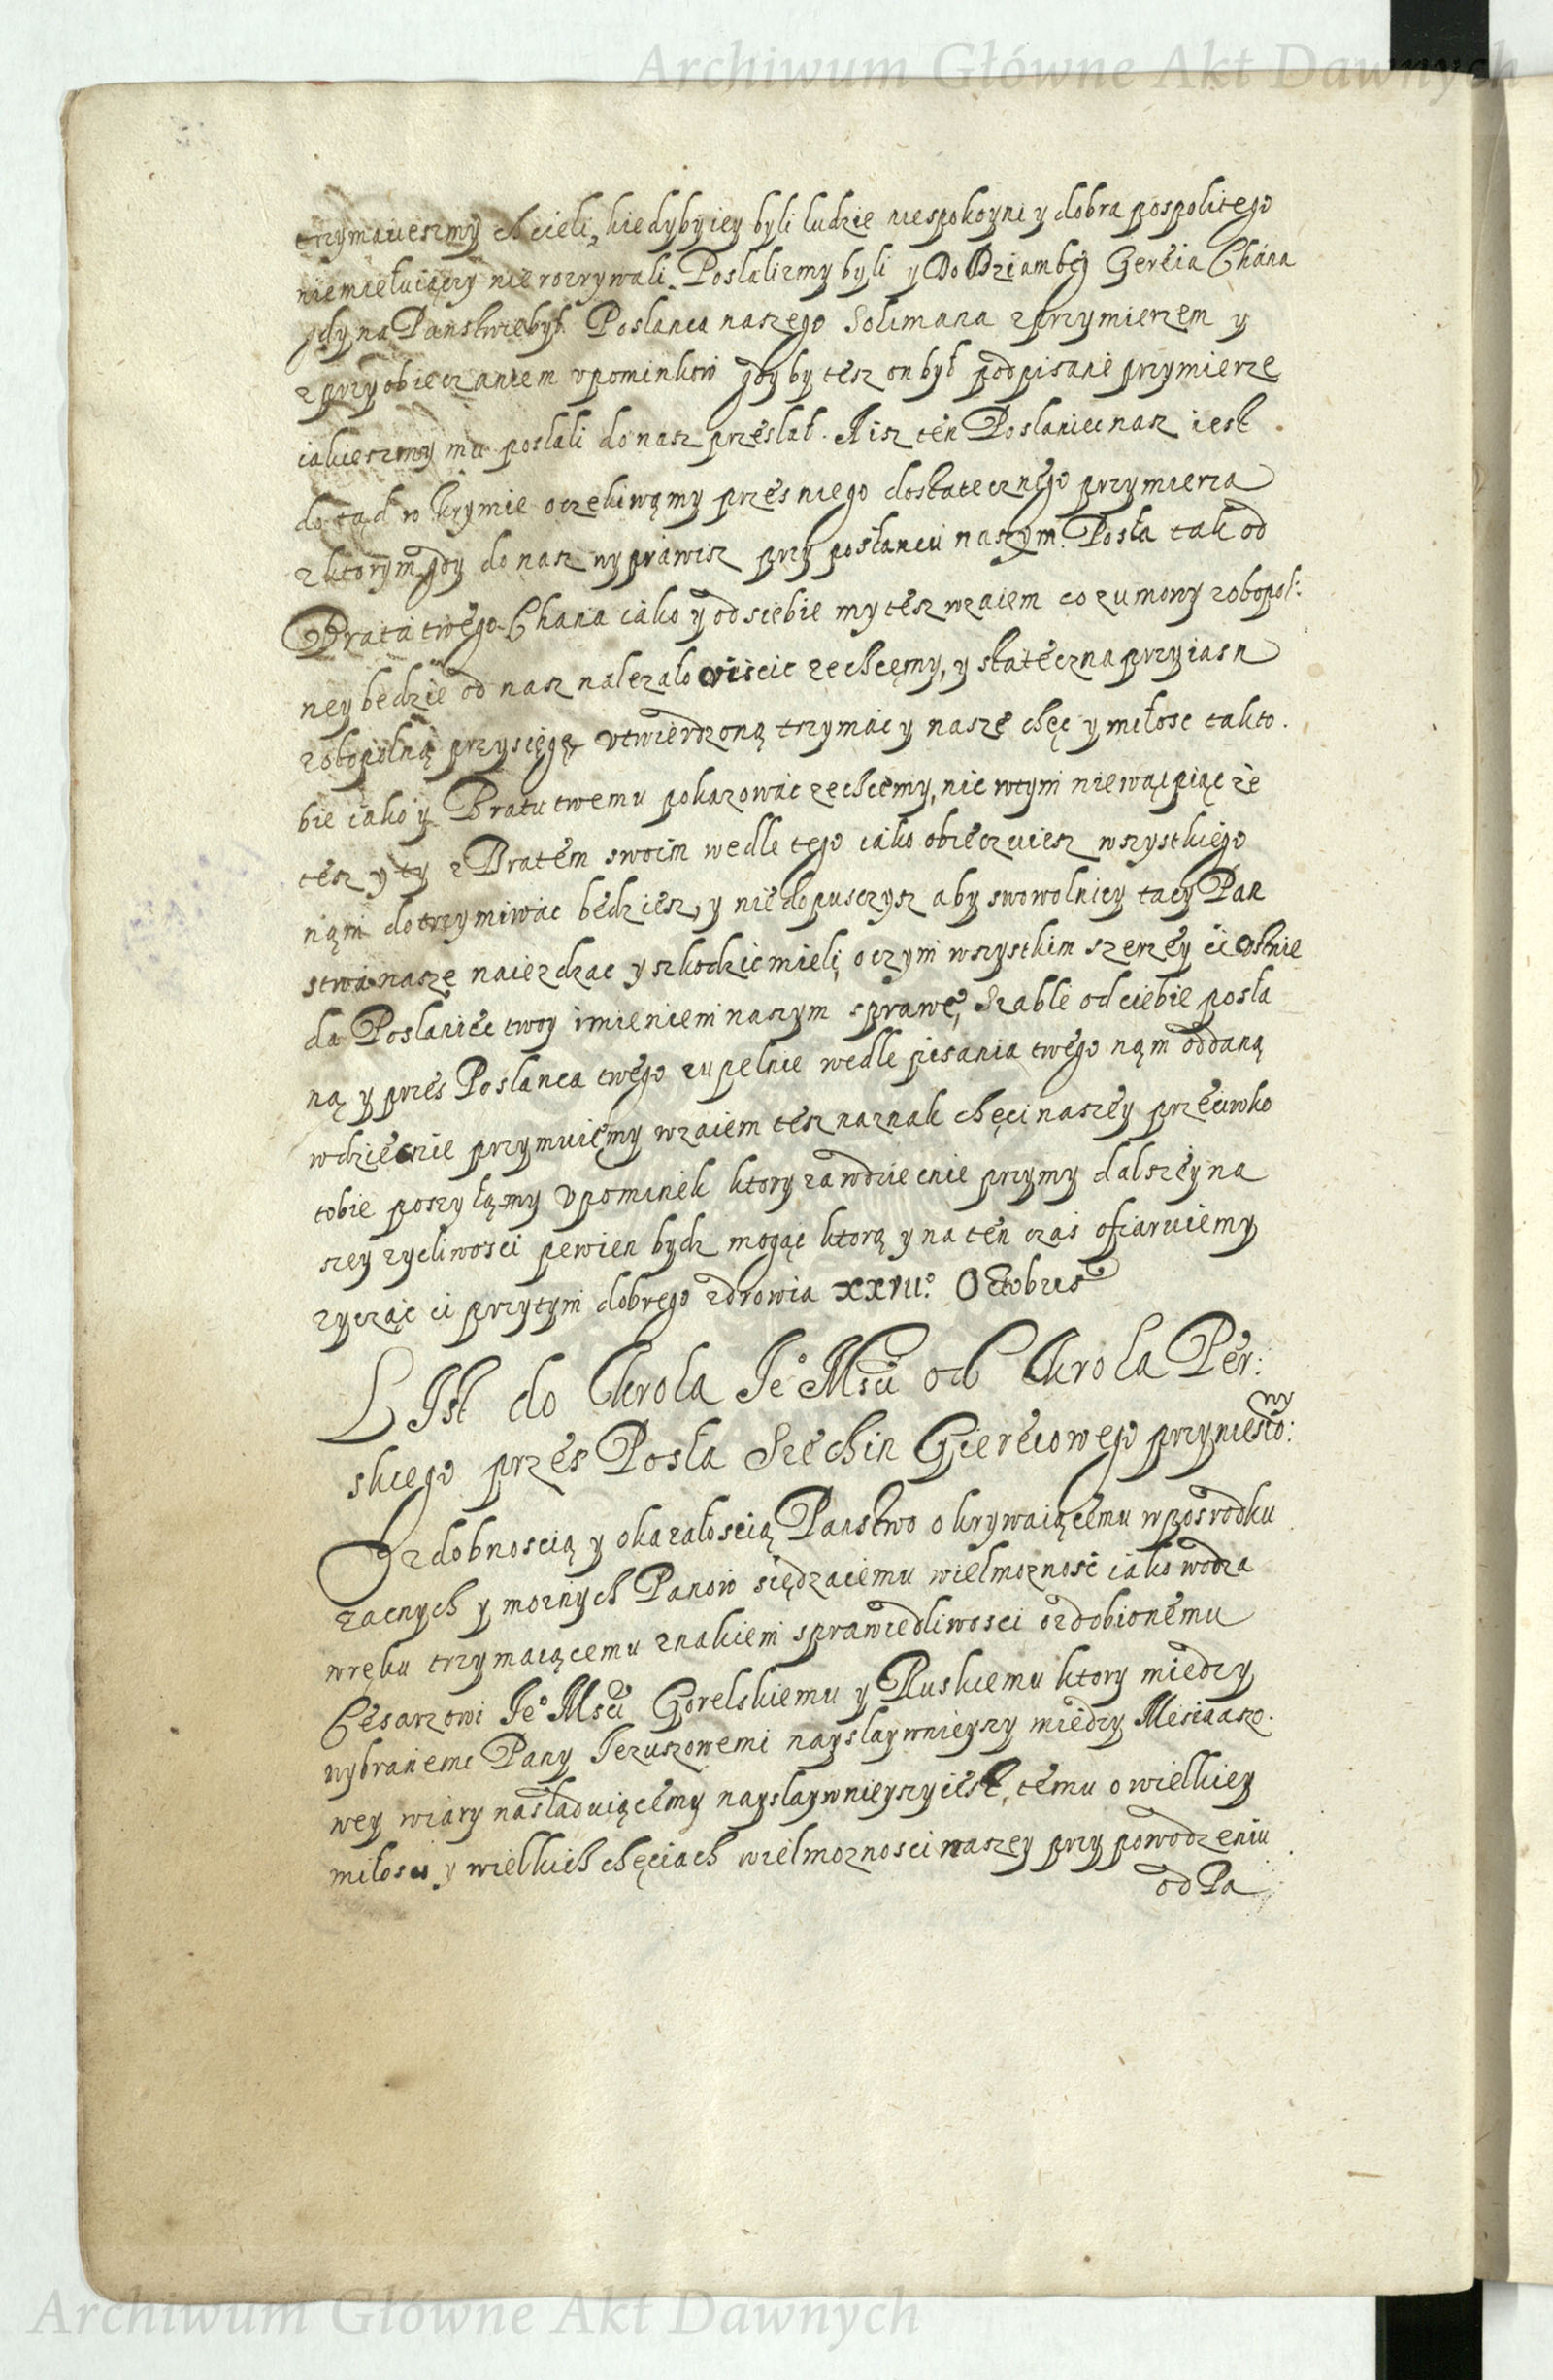 Archiwum Główne Akt Dawnych
trzymacieszmy chcieli, kiedyby iey byli ludzie niespokoyni y dobra pospolitego
niemiełuiączy nie rozrywali. Poslalizmy byli y Do Dziambej Gereia Chána
gdy na Panstwie był. Poslanca naszego Solimana z przymierzem y
z przyobieczaniem vpominkow gdy by tesz on był podpisanè przymierze
iakieszmy mu poslali do nasz przesłał. A isz ten Poslaniec nasz iest
do tąd w krymie oczekiwąmy przes niego dostatecznego przymierza
z ktorym gdy do nasz wyprawisz przy posłancu naszym. Posła tak od
Brata twego Chana iako y od siebie my tesz wzaiem co z umowy zobopol:
ney będzie od nasz nalezało viscic zechcęmy, y stateczna przyiasn
zobopolną przysięgą vtwierdzoną trzymac y nasze chęc y miłosc tak to.
bie iako y Bratu twemu pokazowac zechcemy, nic wtym niewąpiąc zè
tesz y ty z Bratem swoim wedle tego iako obieczuiesz wszystkiego
nąm dotrzymiwac będziesz, y niedopusczysz aby swowolnicy tacy Pan
stwa nasze naiezdzac y szkodzic mieli, o czym wszystkim szerzey ci vstnie
da Poslaniec twoy imieniem naszym sprawę, Szable od ciebie posła
ną y przes Poslanca twego zupelnie wedle pisania twego nąm oddaną
wdziecznie przymuiemy wzaiem tesz naznak chęci naszey przeciwko
tobie poszyłąmy vpominek ktory za wdziecnie przymy dalszey na
szey zycliwosci pewien bydz mogąc ktorą y na ten czas ofiaruiemy
zycząc ci przytym dobrego zdrowia xxvii° Octobris
LIst do Krola Je° Mści od Krola Per:
skiego przes Posła Szechin Giereiowego przyniesio:
ny
Ozdobnoscią y okazałoscią Panstwo okrywaiącemu wposrodku
zacnych y moznych Panow siędzacemu wielmoznosc iako wodza
wręku trzymaiącemu znakiem sprawiedliwosci ozdobionemu
Cesarzowi Je° Mści Gorelskiemu y Ruskiemu ktory miedzy
wybranemi Pany Jezuszowemi nayslaywnieyszy miedzy Mesiaaszo.
wey wiary nasladuiącemy nayslaywnieyszy iest, temu o wielkiey
milosci y wielkich chęciach wielmoznosci naszey przy powodzeniu
od Pa
Archiwum Główne Akt Dawnych